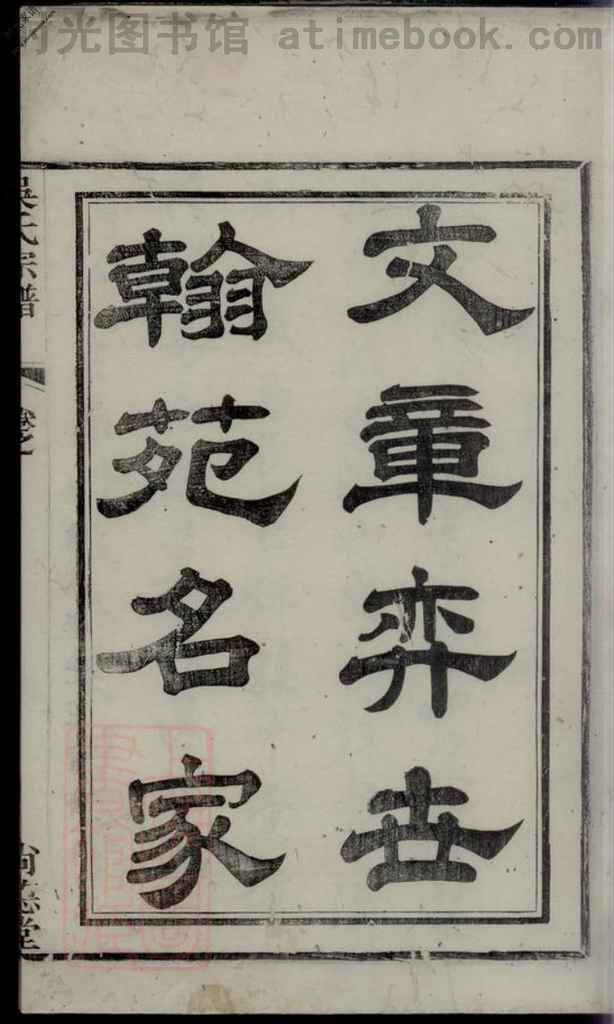 时光图书馆 atimebook.com
文章弈世
翰苑名家
吴氏宗譜
卷之
尚德堂